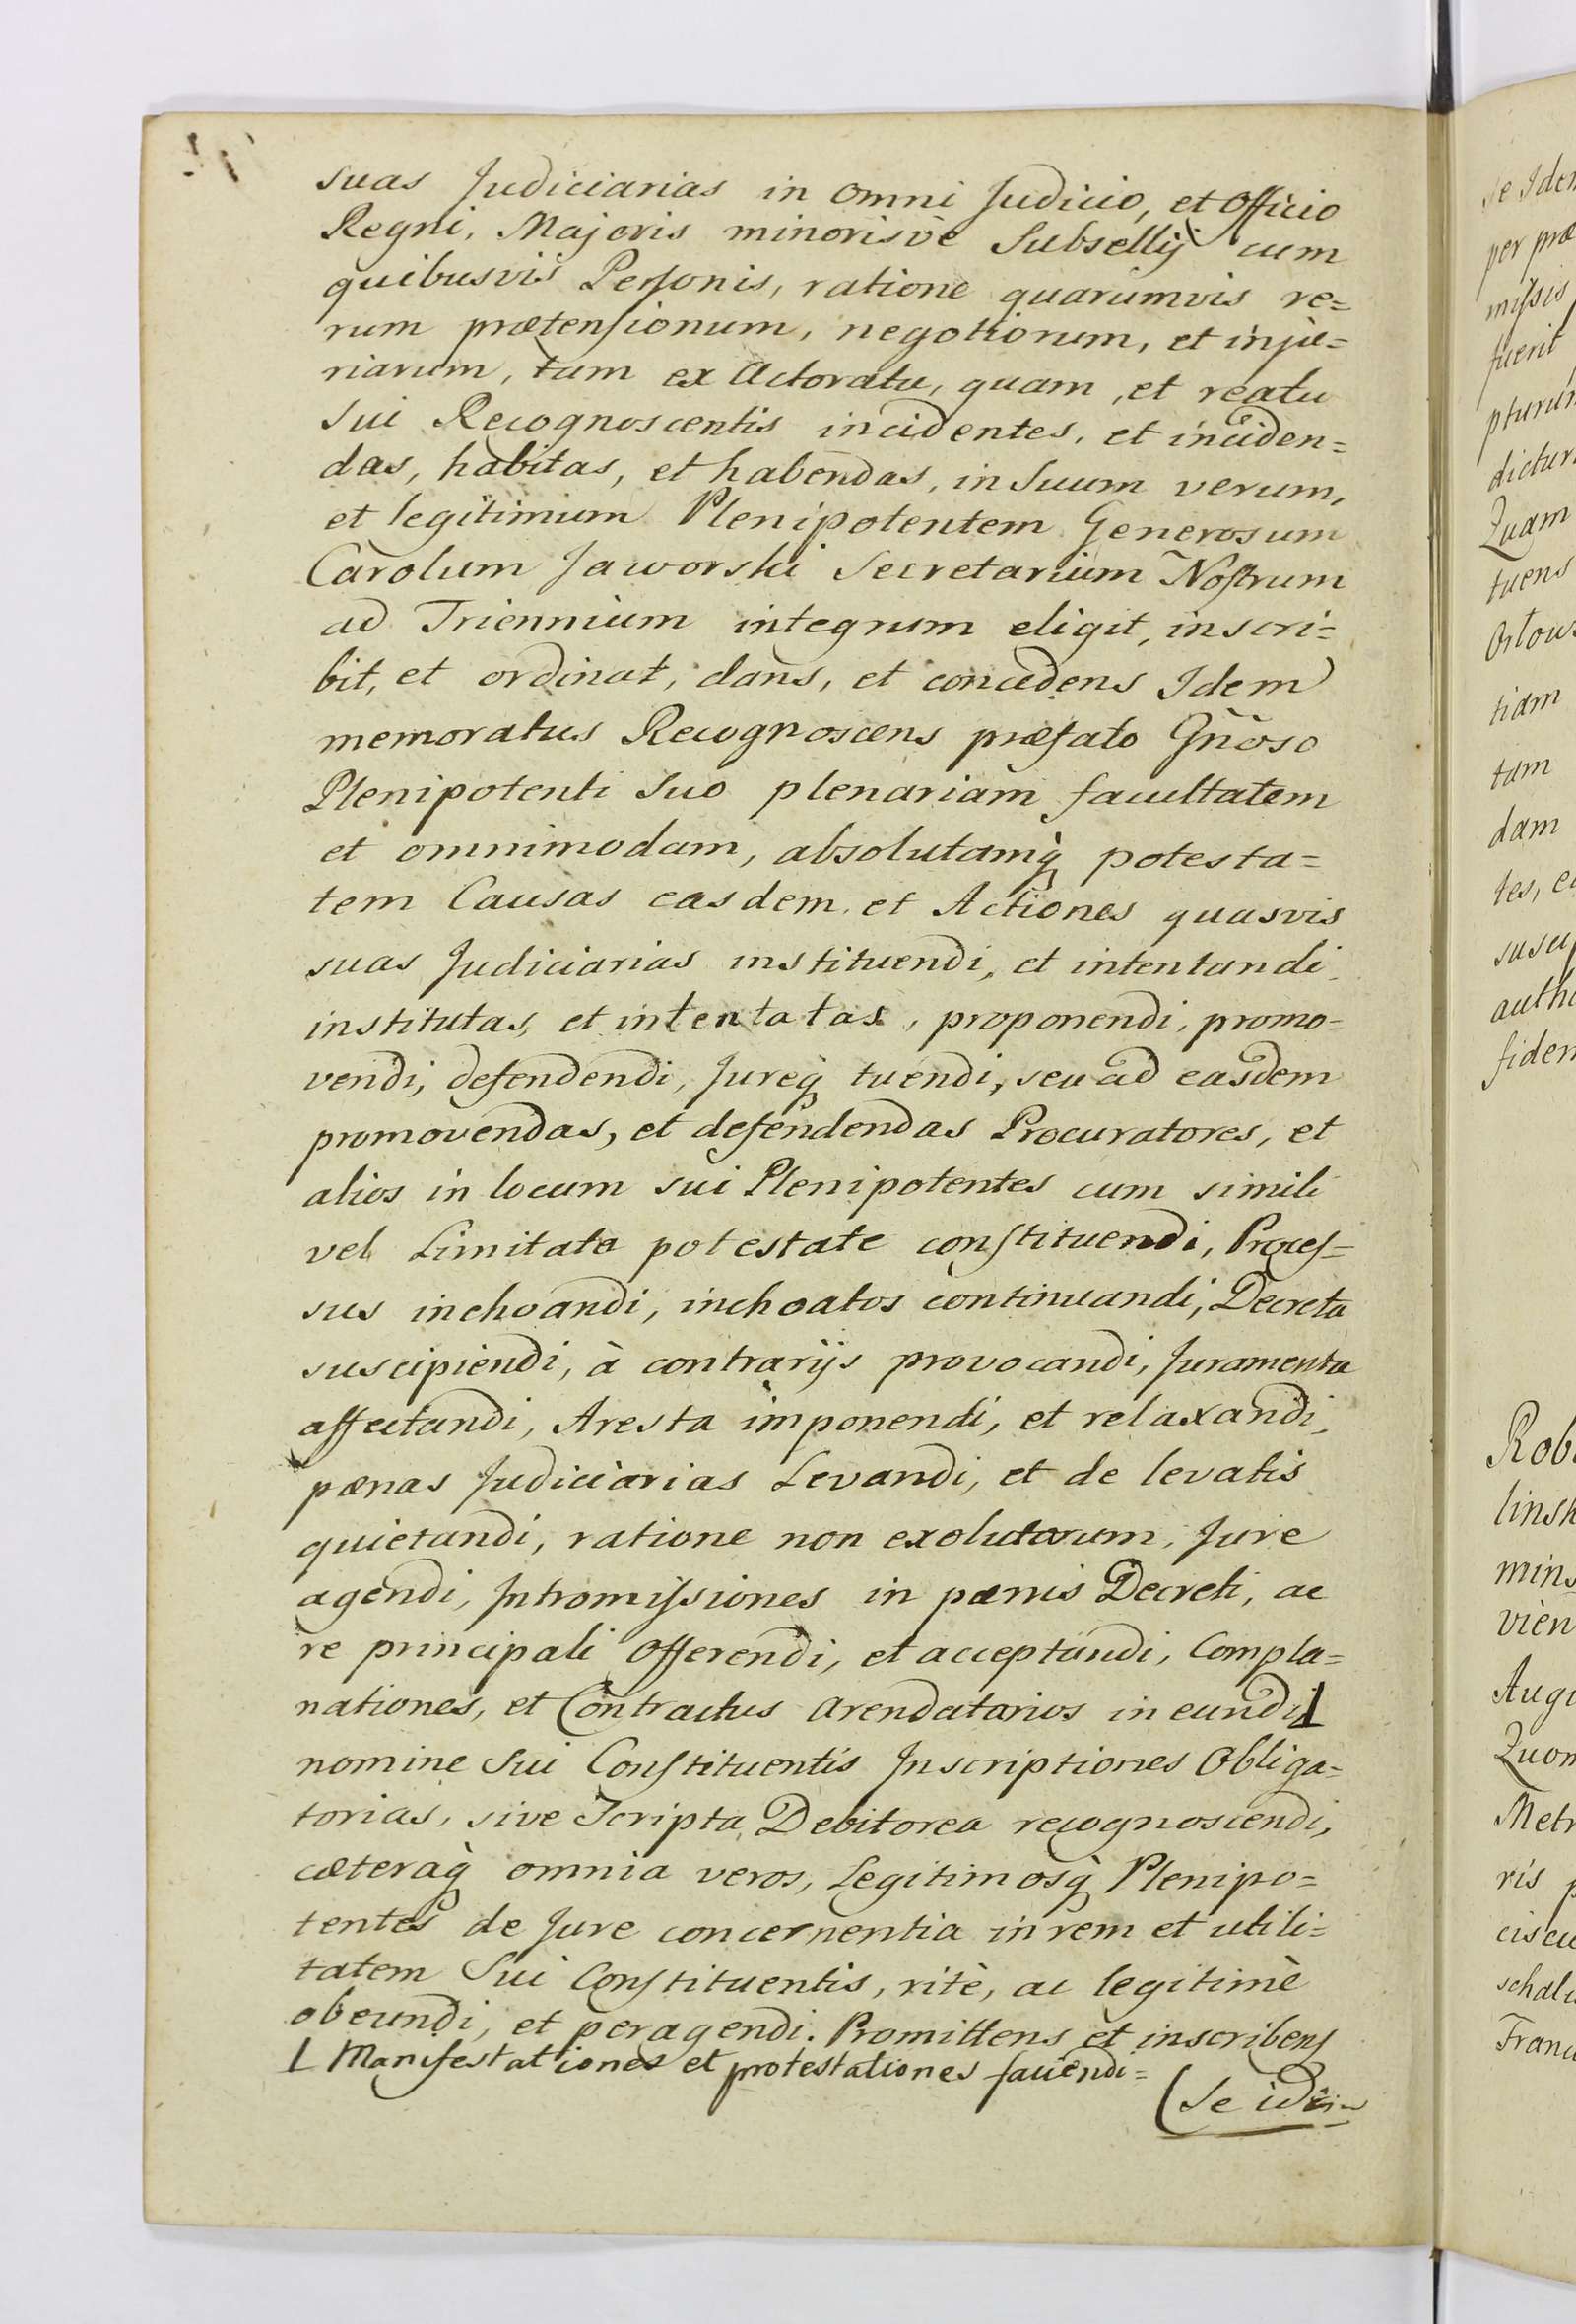 suas Judiciarias in omni Judicio, et Officio
Regni, Majoris minorisvè Subsellij cum
quibusvis Personis, ratione quarumvis re=
rum prætensionum, negotiorum, et inju=
riarum, tam ex Actoratu, quam, et reatu
Sui Recognoscentis incidentes, et inciden=
das, habitas, et habendas, in Suum verum,
et legitimum Plenipotentem Generosum
Carolum Jaworski Secretarium Nostrum
ad Triennium integrum eligit, inscri=
bit, et ordinat, dans, et concedens Idem
memoratus Recognoscens præfato Gñoso
Plenipotenti Suo plenariam facultatem
et omnimodam, absolutamq̀ potesta=
tem Causas easdem, et Actiones quasvis
suas Judiciarias instituendi, et intentandi,
institutas, et intentatas, proponendi, promo=
vendi, defendendi, Jureq̀ tuendi, seu ad easdem
promovendas, et defendendas Procuratores, et
alios in locum sui Plenipotentes cum simili
vel Limitata potestate constituendi, Proces=
sus inchoandi, inchoatos continuandi, Decreta
suscipiendi, à contrarijs provocandi, Juramenta
affectandi, Aresta imponendi, et relaxandi,
pænas Judiciarias Levandi, et de levatis
quietandi, ratione non exolutarum, Jure
agendi, Intromissiones in pænis Decreti, ac
re principali Offerendi, et acceptandi, Compla=
nationes, et Contractus Arendatarios ineundi ⊥
nomine Sui Constituentis Inscriptiones Obliga=
torias, sive Scripta Debitorea recognoscendi,
cæteraq̀ omnia veros, Legitimosq̀ Plenipo=
tentes de Jure concernentia in rem et utili=
tatem Sui Constituentis, ritè, ac legitimè
obeundi, et peragendi. Promittens et inscribens
⊥ Manifestationes et protestationes faciendi=
(Se idem
se Idem
per præ
missis
fuerit
pturum
dictur
Quam
tuens
Ostow
tiam
tam
dam
tes, e
suscip
autho
fidem
Rob
linsk
mins
vien
Augu
Quom
Metr
ris p
ciscu
schal
Franc